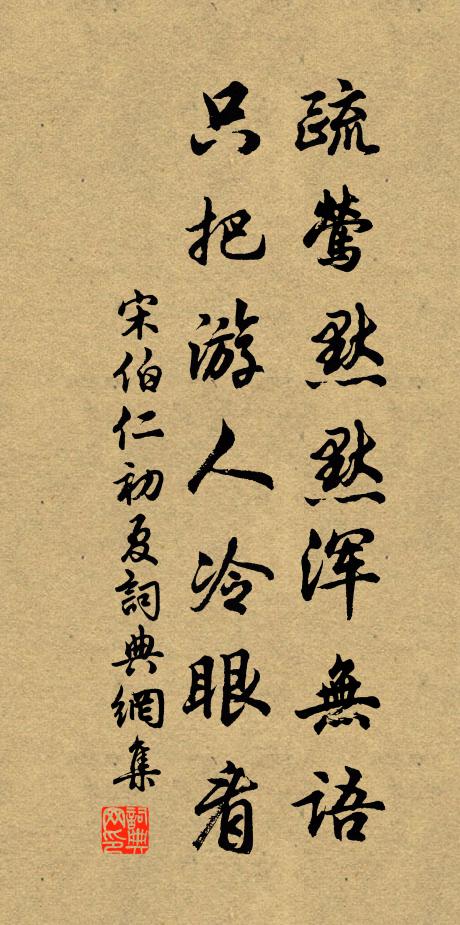 疏莺默默浑無语
只把游人冷眼看
宋伯仁初夏詞典網集
詞典网印